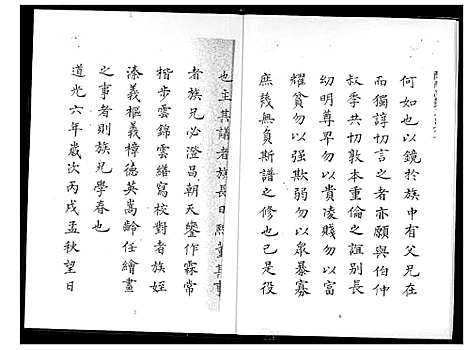 何如也以鏡於族中有父兄在
而獨諄切言之者亦願與伯仲
叔季共切敦本重倫之誼別長
幼明尊卑勿以貴陵賤勿以富
耀貧勿以强欺弱勿以衆暴寡
庶幾無負斯譜之修也已是役
也主其議者族長日熙董其事
者族兄必澄昌朝天鑒作霖常
楷步雲錦雲繕寫校對者族姪
溱義樞義樟德英嵩齡任繪畫
之事者則族兄學春也
道光六年歲次丙戌孟秋望日